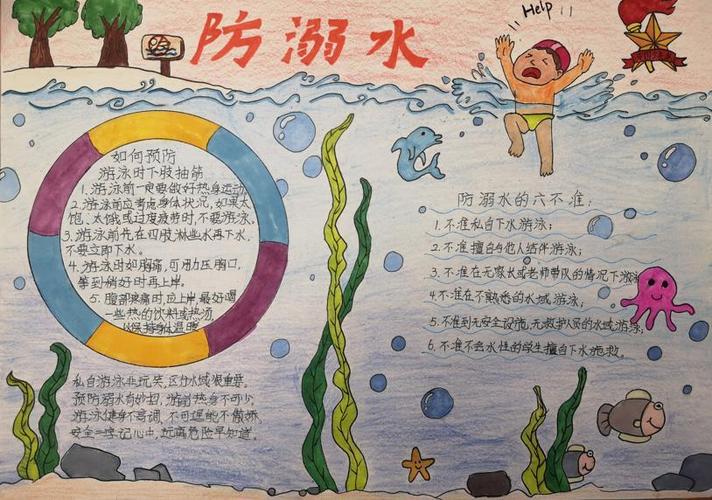 防溺水
Help!!
如何预防
游泳时下肢抽筋
1.游泳前一定要做好热身运动
2.游泳前应考虑身体状况,如果太
饱、太饿或过度疲劳时,不要游泳。
3.游泳前先在四肢淋些水再下水,
不要立即下水。
4.游泳时如胸痛,可用力压胸口,
等到稍好时再上岸。
5.腹部疼痛时,应上岸,最好喝
一些热的饮料或热汤
以保持身体温暖
私自游泳非玩笑,区分水域很重要。
预防溺水有妙招,游前热身不可少。
游泳健身不高调,不可逞能不傲娇。
安全一字记心中,远离危险早知道。
防溺水的六不准:
1.不准私自下水游泳;
2.不准擅自与他人结伴游泳;
3.不准在无家长或老师带队的情况下游泳
4.不准在不熟悉的水域游泳;
5.不准到无安全设施、无救护人员的水域游泳;
6.不准不会水性的学生擅自下水施救。